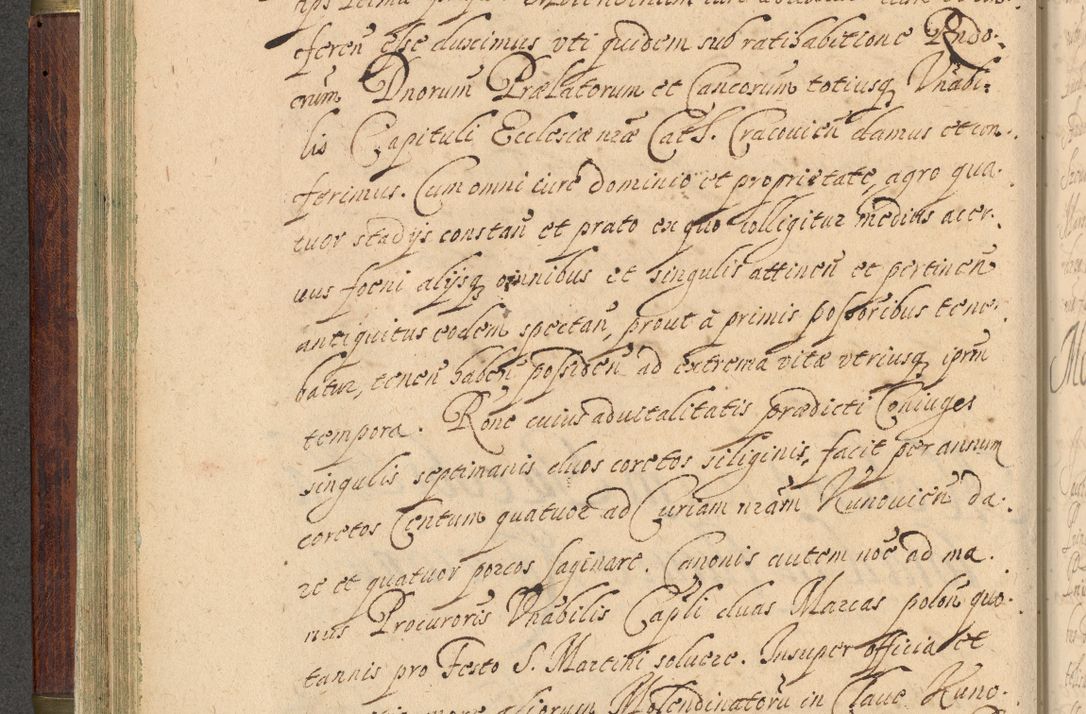 feren̄ esse duximus vti quidem sub ratihabitione Rndo-
rum Dnorum Prælatorum et Cancorum totiusq, Vnabi=
lis Capituli Ecclesiæ nræ Cat. S. Cracovien̄ damus et con-
ferimus. Cum omni iure dominio et proprietate, agro qua-
tuor stadijs constan̄ et prato ex quo colligitur medius acer-
uus foeni alijsq, omnibus et singulis attinen̄ et pertinen̄
antiquitus eodem spectan̄, prout à primis possoribus tene-
batur, tenen̄ haben̄ possiden̄ ad extrema vitæ vtriusq, ipru̅m
tempora. Rone cuius aduitalitatis prædicti Coniuges
singulis septimanis duos coretos siliginis, facit per annum
coretos Centum quatuor ad Curiam nram̄ Kunovien̄ da-
re et quatuor porcos saginare. Canonis autem noe̅ ad ma-
nus Procuroris Vnabilis Capli duas Marcas polon̄ quo-
tannis pro Festo S. Martini soluere. Insuper officia et
more aliorum Molendinatoru̅ in Claue Kuno-